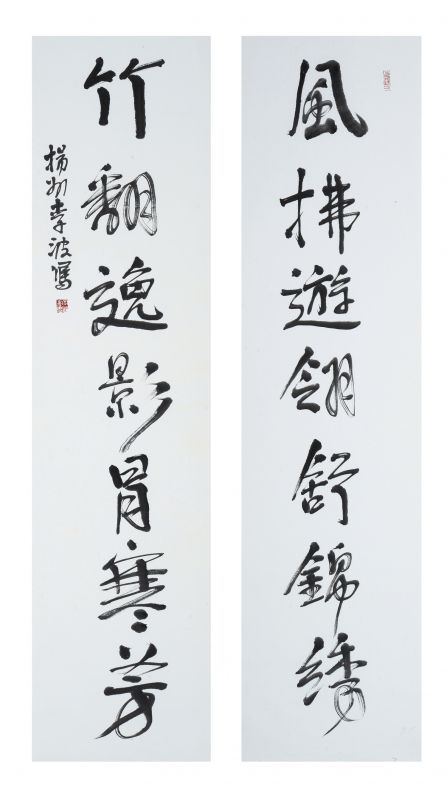 風拂遊翎舒錦綉
竹翻逸影罥寒芳
揚州李波寫